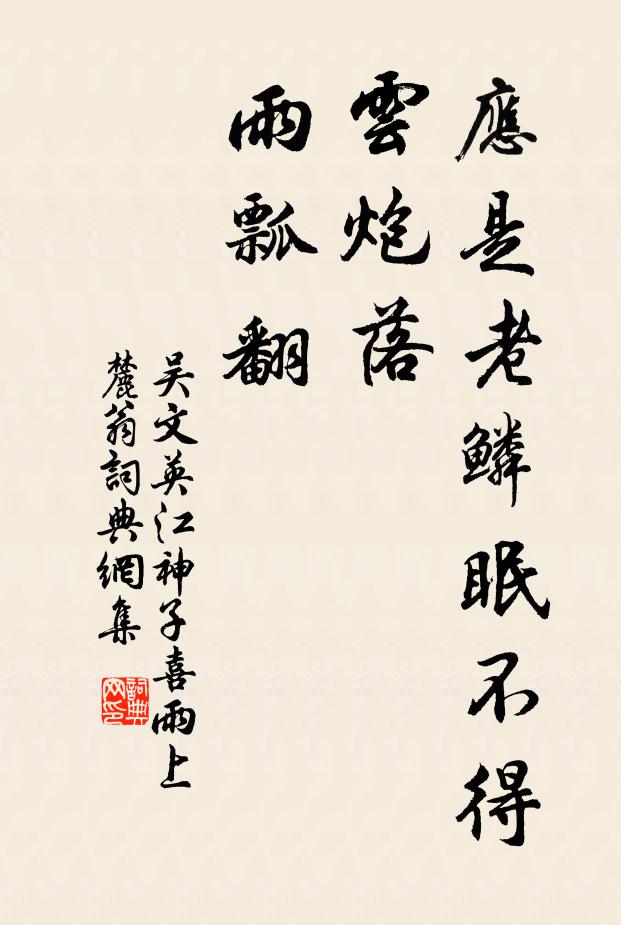 應是老鱗眠不得
雲炮落
雨瓢翻
吴文英江神子喜雨上
麓翁詞典網集
詞典
网印